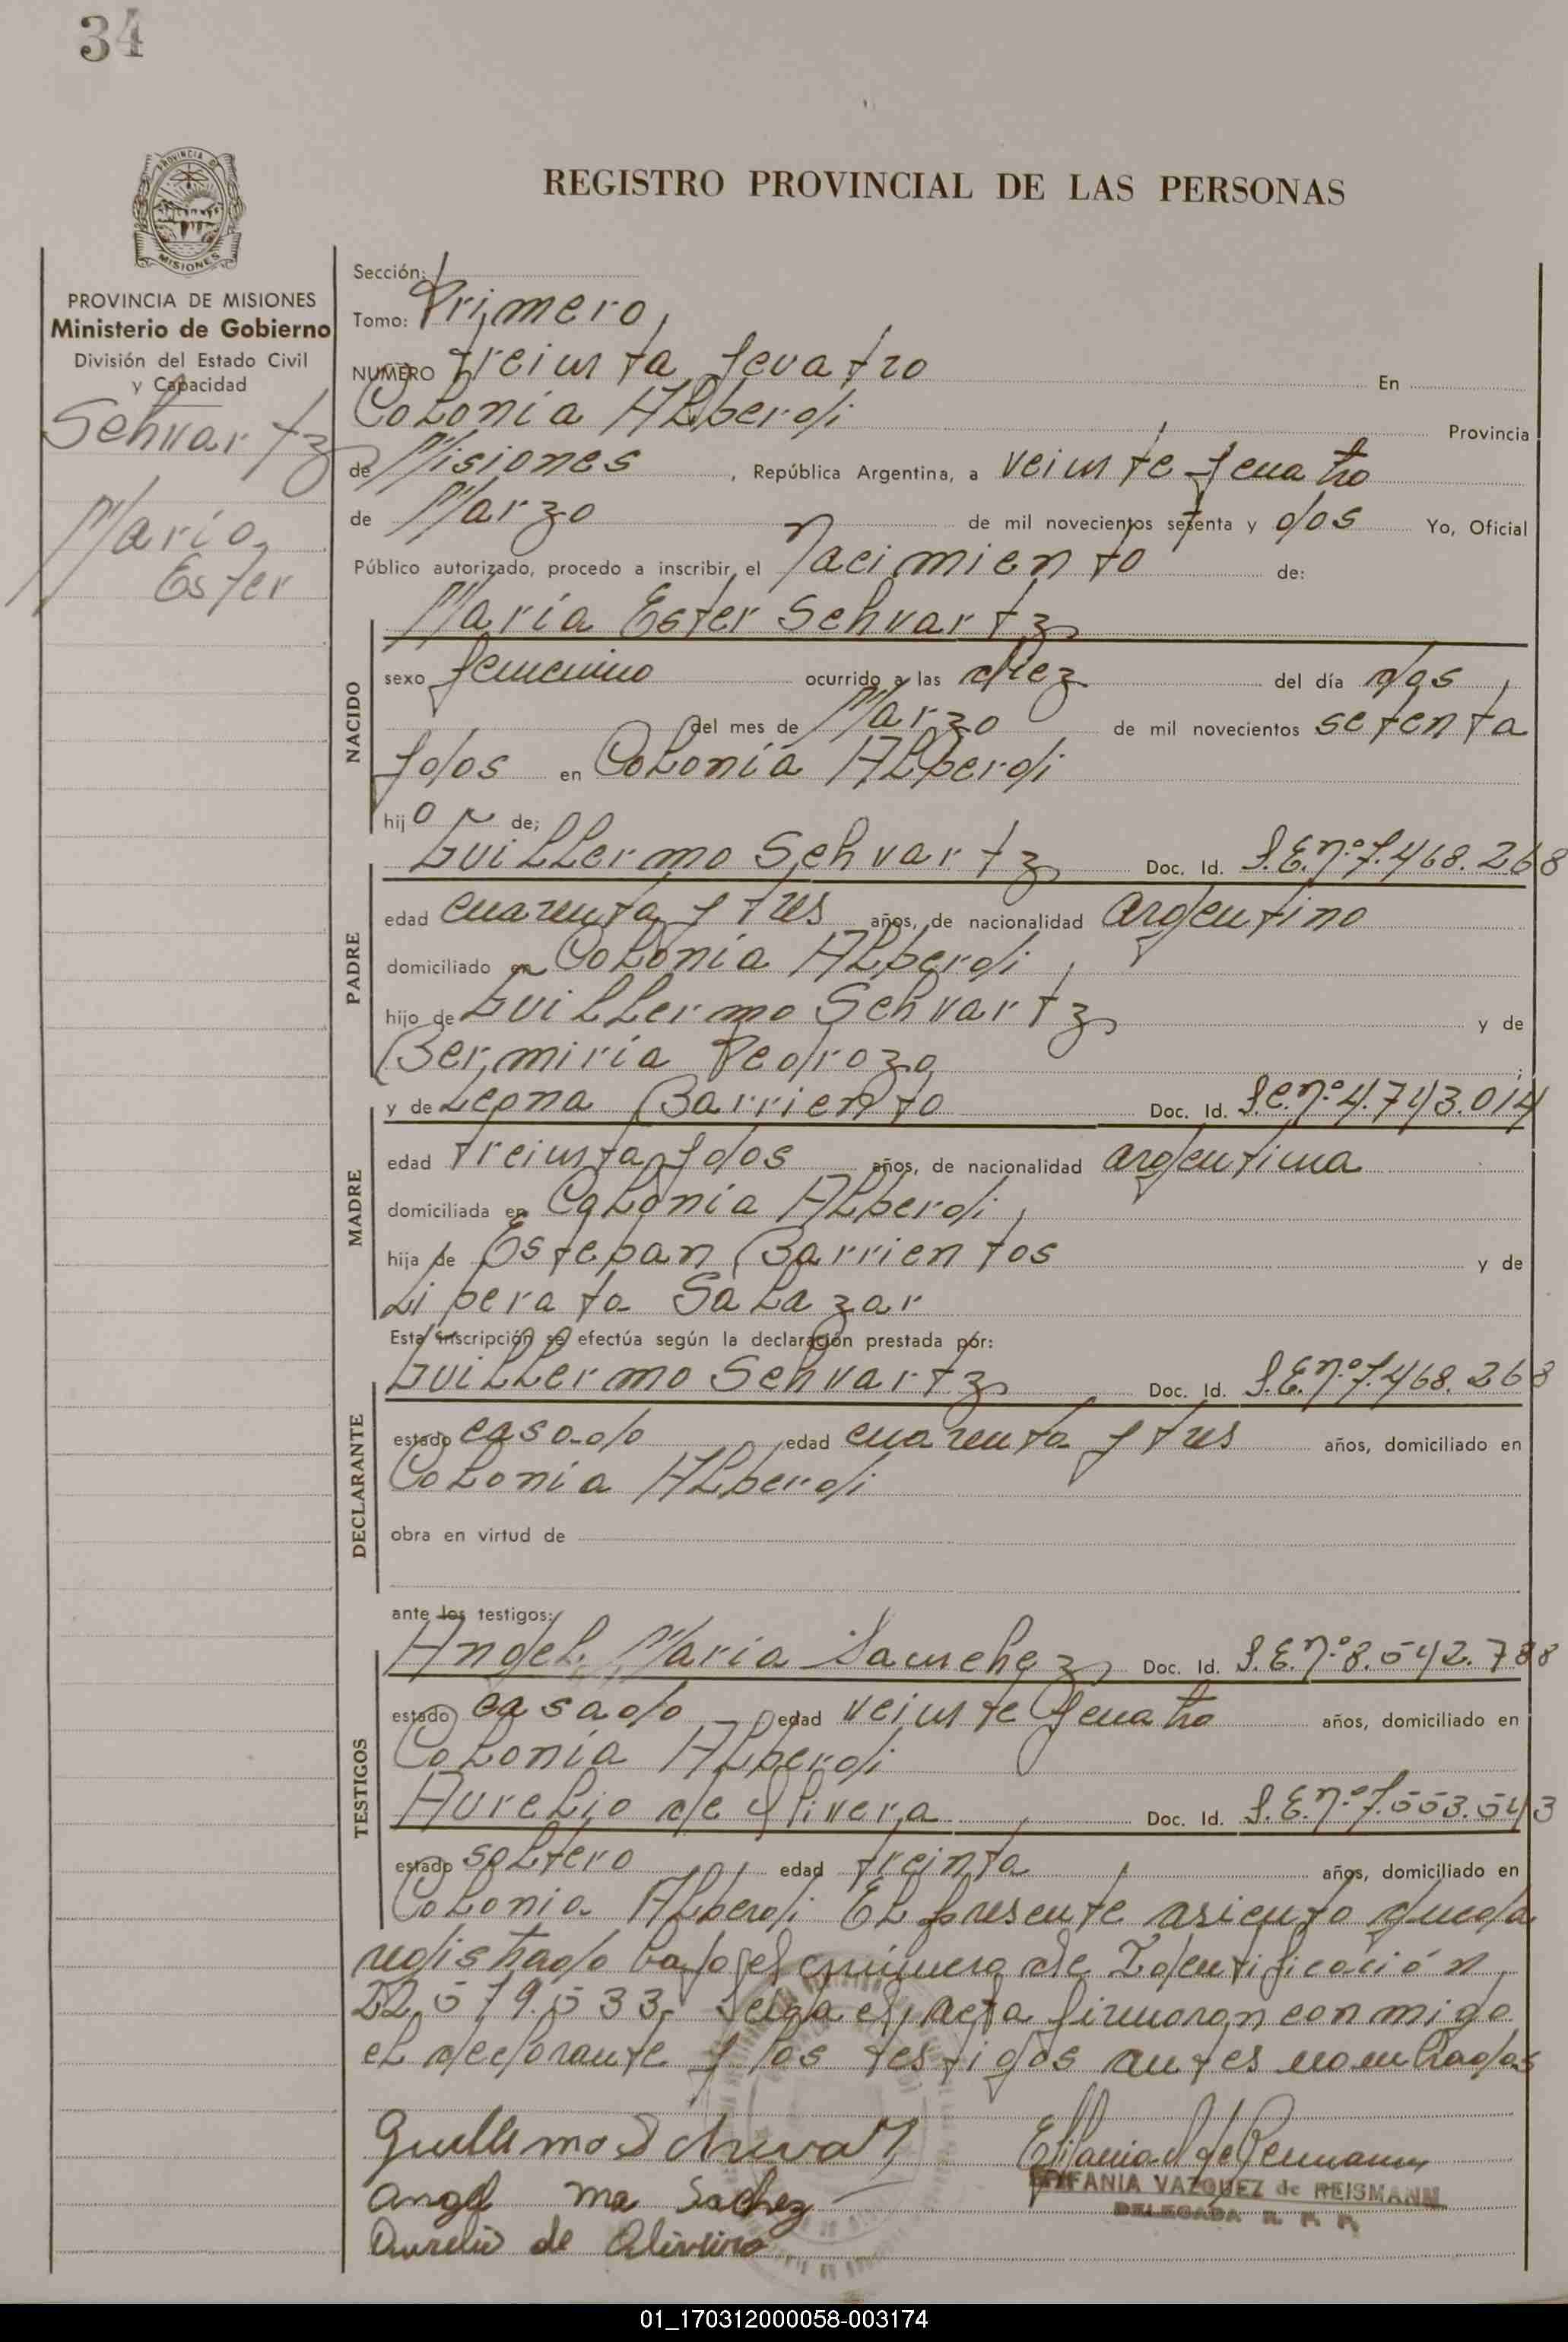 34
REGISTRO PROVINCIAL DE LAS PERSONAS
PROVINCIA DE MISIONES
MISIONES
PROVINCIA DE MISIONES
Ministerio de Gobierno
División del Estado Civil
y Capacidad
Schvartz
María
Ester
Sección:
Tomo: Primero
NUMERO treinta y cuatro En
Colonia ALberdi Provincia
de Misiones, República Argentina, a veinte y cuatro
de Marzo de mil novecientos setenta y dos Yo, Oficial
Público autorizado, procedo a inscribir el Nacimiento de:
María Ester Schvartz
NACIDO
sexo femenino ocurrido a las diez del día dos
del mes de Marzo de mil novecientos setenta
y dos en Colonia ALberdi
hijo de;
PADRE
Guillermo Schvartz Doc. Id. L.E.nº.7.468.268
edad cuarenta y tres años, de nacionalidad argentino
domiciliado en Colonia ALberdi
hijo de Guillermo Schvartz y de
Bermiria Pedrozo
MADRE
y de Leona Barriento Doc. Id. L.C.nº.4.743.014
edad treinta y dos años, de nacionalidad argentina
domiciliada en Colonia ALberdi
hija de Esteban Barrientos y de
Liberata Salazar
Esta inscripción se efectúa según la declaración prestada por:
DECLARANTE
Guillermo Schvartz Doc. Id. L.E.nº.7.468.268
estado casado edad cuarenta y tres años, domiciliado en
Colonia ALberdi
obra en virtud de
ante los testigos:
TESTIGOS
Angel María Sanchez Doc. Id. L.E.nº.8.542.788
estado casado edad veinte y cuatro años, domiciliado en
Colonia ALberdi
Aurelio de Olivera Doc. Id. L.E.nº.7.553.543
estado soltero edad treinta años, domiciliado en
Colonia ALberdi El presente asiento queda
registrado bajo el número de Identificación
22.579.533. Leida el acta firmaron conmigo
el declarante y los testigos antes nombrados
Guillermo Schwartz
Angel Ma Sachez
Aurelio de Oliveira
EPIFANIA VAZQUEZ de REISMANN
DELEGADA R. P. P.
01_170312000058-003174